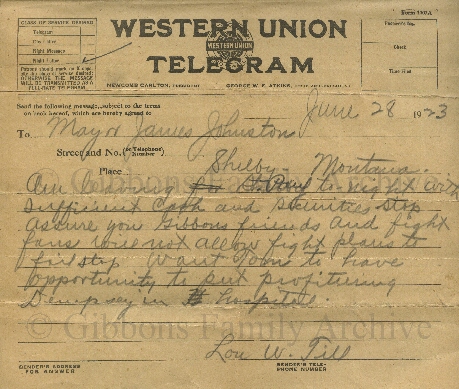 Form 1207A
CLASS OF SERVICE DESIRED
Telegram
Day Letter
Night Message
Night Letter
OTHERWISE THE MESSAGE
WILL BE TRANSMITTED AS A
FULL-RATE TELEGRAM
WESTERN UNION
WESTERN UNION
TELEGRAM
NEWCOMB CARLTON, PRESIDENT
GEORGE W. E. ATKINS, FIRST VICE-PRESIDENT
Receiver's No.
Check
Time Filed
Send the following message, subject to the terms
on back hereof, which are hereby agreed to
June 28 1923
To Mayor James Johnston
Street and No. (or Telephone Number)
Place Shelby, Montana.
Am leaving St. Paul to-night with
sufficient cash and securities stop
assure you Gibbons friends and fight
fans will not allow fight plans to
fail stop Want Tom to have
opportunity to put profiteering
Dempsey in hospital.
Lou W. Till
SENDER'S ADDRESS
FOR ANSWER
SENDER'S TELE-
PHONE NUMBER
© Gibbons Family Archive
© Gibbons Family Archive